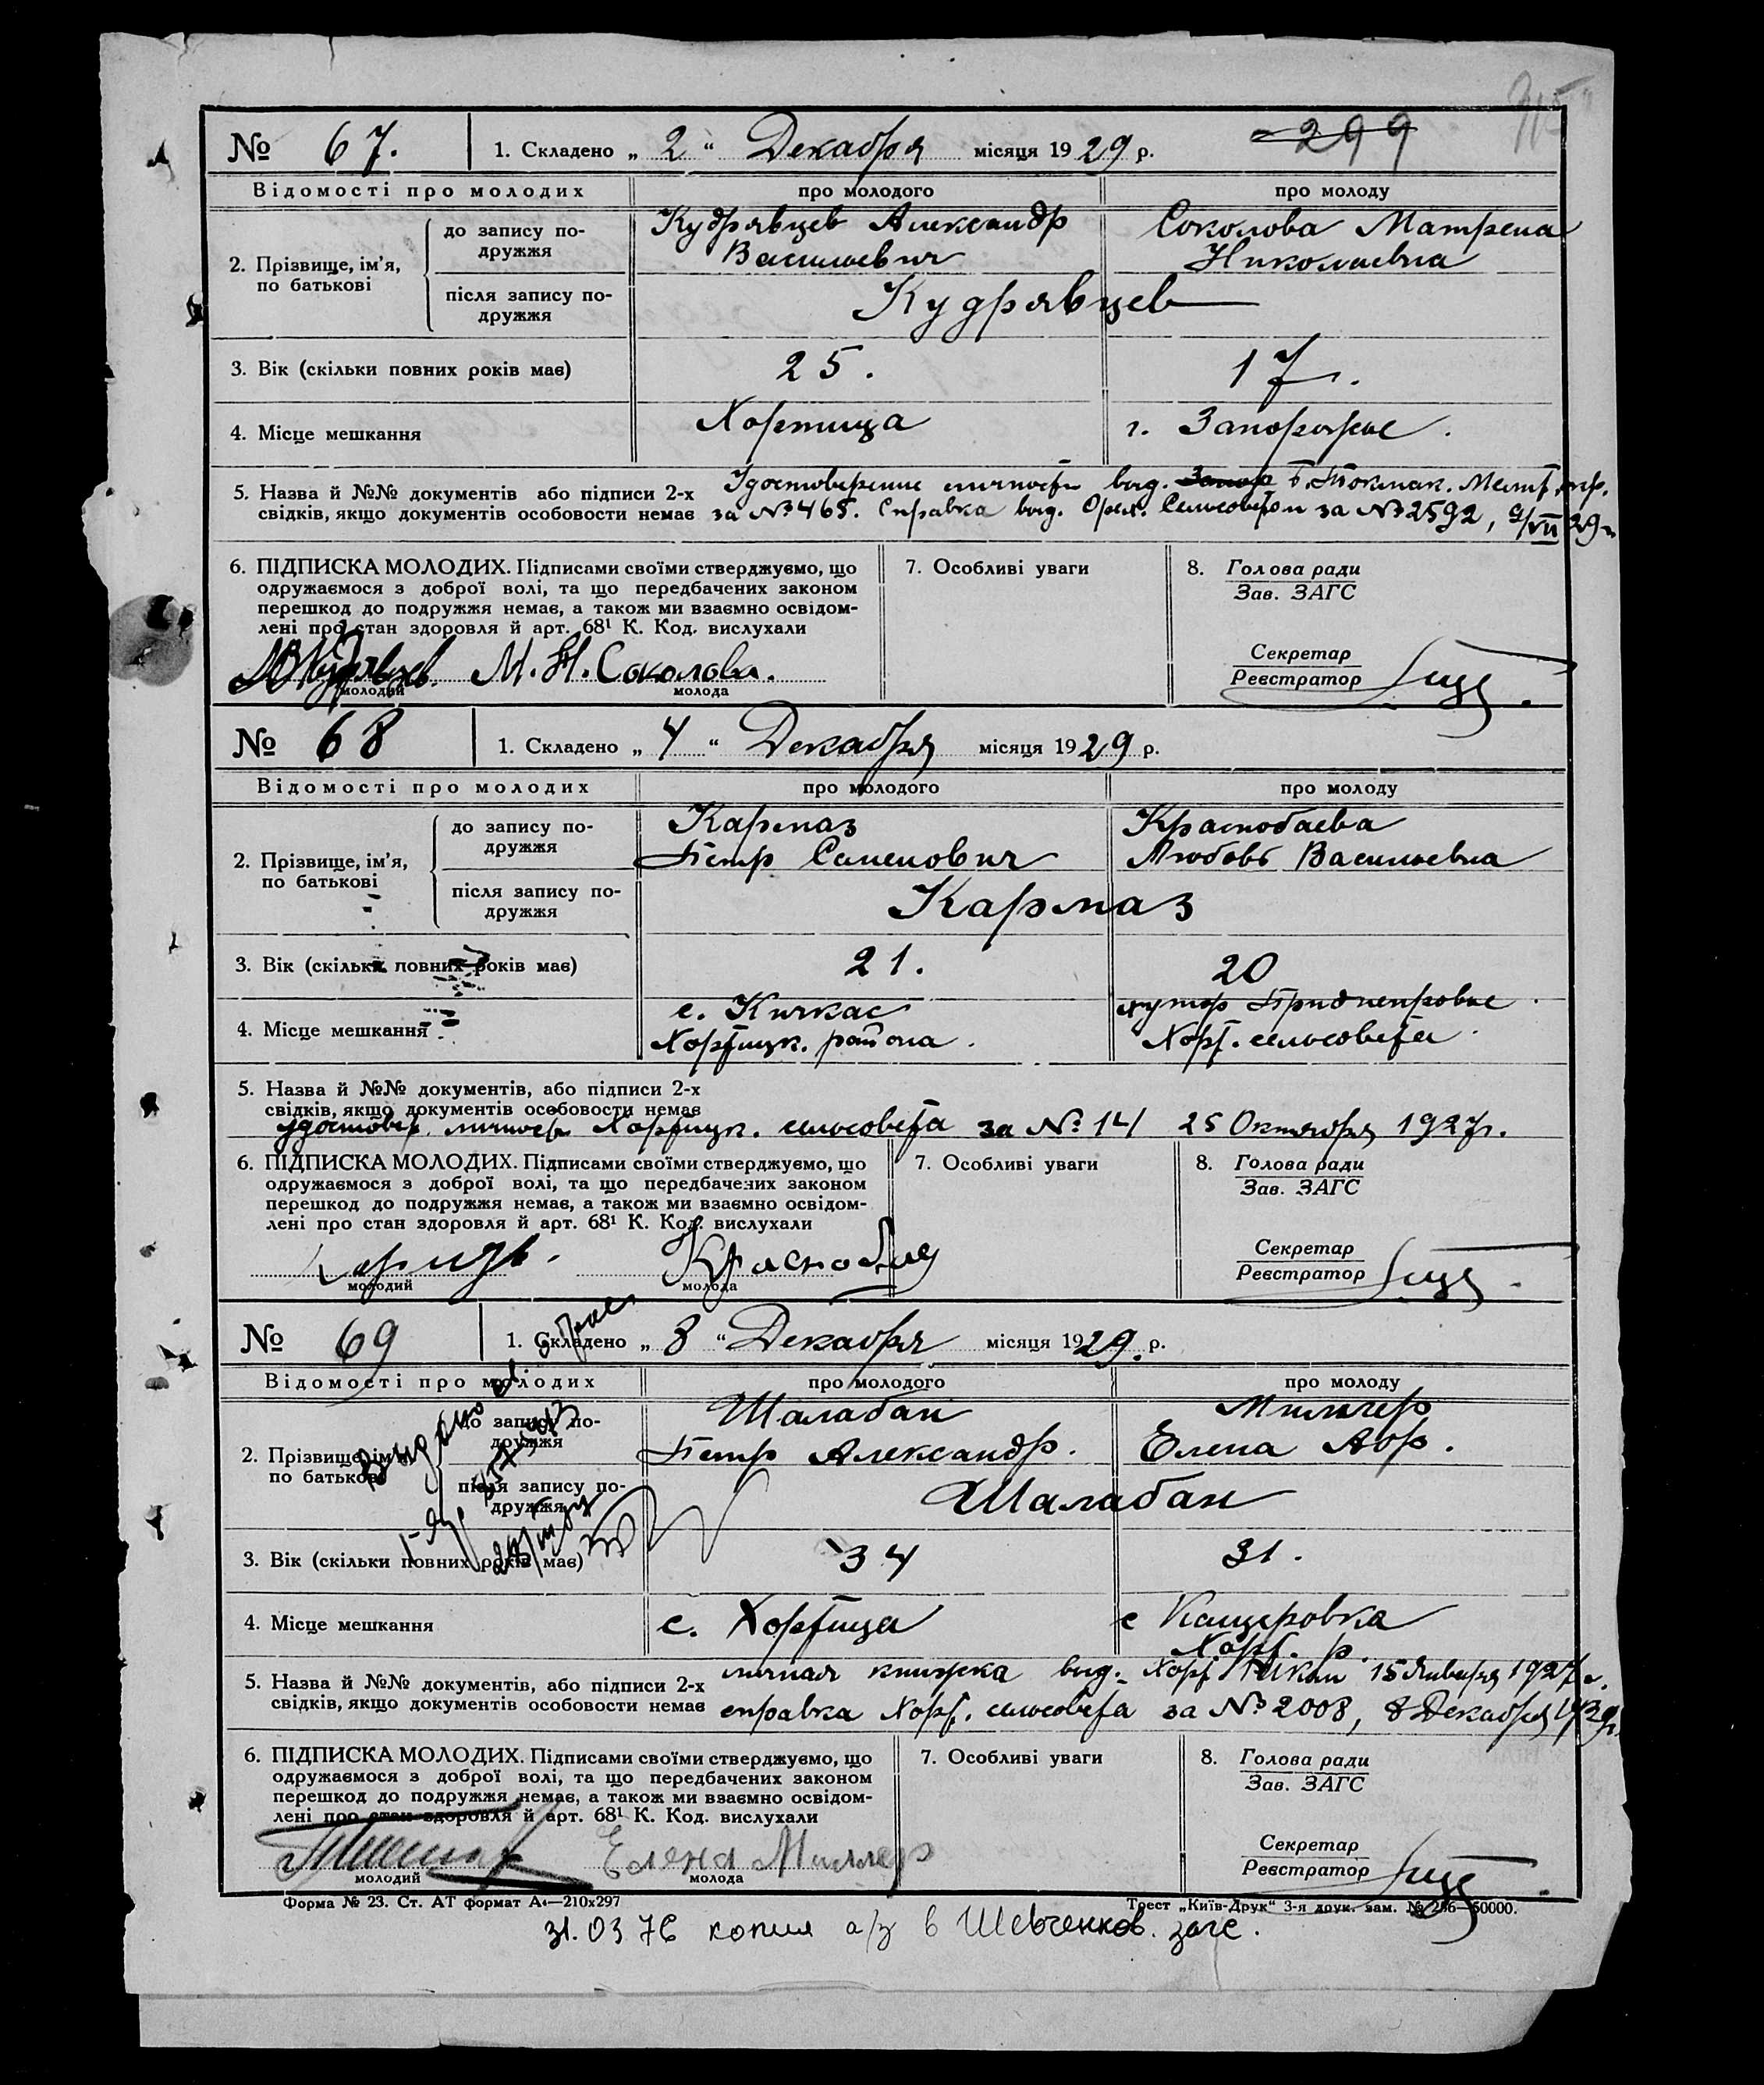 299
№ 67. 1. Складено „ 2 “ Декабря місяця 1929 р.
Відомості про молодих про молодого про молоду
2. Прізвище, ім’я, по батькові
до запису подружжя
Кудрявцев Александр Васильевич
Соколова Матрена Николаевна
після запису подружжя
Кудрявцев
3. Вік (скільки повних років має) 25. 17 г.
4. Місце мешкання Хортица г. Запорожье.
5. Назва й №№ документів або підписи 2-х Удостоверение личности выд. Б. Токмак.
свідків, якщо документів особовости немає за № 465. Справка выд. Сельсоветом за № 2592, 29 г.
6. ПІДПИСКА МОЛОДИХ. Підписами своїми стверджуємо, що
одружаємося з доброї волі, та що передбачених законом
перешкод до подружжя немає, а також ми взаємно освідом-
лені про стан здоровля й арт. 68¹ К. Код. вислухали
Кудрявцев. М. Н. Соколова.
молодий молода
7. Особливі уваги
8. Голова ради
Зав. ЗАГС
Секретар
Реєстратор
№ 68 1. Складено „ 4 “ Декабря місяця 1929 р.
Відомості про молодих про молодого про молоду
2. Прізвище, ім’я, по батькові
до запису подружжя
Кармаз
Петр Семенович
Краснобаева
Любовь Васильевна
після запису подружжя
Кармаз
3. Вік (скільки повних років має) 21. 20
4. Місце мешкання
с. Кичкас
Хортицк. района.
хутор Приднепровье
Хорт. сельсовета
5. Назва й №№ документів, або підписи 2-х
свідків, якщо документів особовости немає
удостовер. личности Хортицк. сельсовета за № 141 25 Октября 1927 г.
6. ПІДПИСКА МОЛОДИХ. Підписами своїми стверджуємо, що
одружаємося з доброї волі, та що передбачених законом
перешкод до подружжя немає, а також ми взаємно освідом-
лені про стан здоровля й арт. 68¹ К. Код. вислухали
молодий молода
7. Особливі уваги
8. Голова ради
Зав. ЗАГС
Секретар
Реєстратор
№ 69 1. Складено „ 8 “ Декабря місяця 1929. р.
Відомості про молодих про молодого про молоду
2. Прізвище, ім’я, по батькові
до запису подружжя
Шалабан
Петр Александр.
Миллер
Елена Абр.
після запису подружжя
Шалабан
3. Вік (скільки повних років має) 34 31.
4. Місце мешкання с. Хортица с Канцеровка
Хорт. р.
5. Назва й №№ документів, або підписи 2-х личная книжка выд. Хорт. РИКом 15 Января 1927 г.
свідків, якщо документів особовости немає справка Хорт. сельсовета за № 2008, 8 Декабря 1929 г.
6. ПІДПИСКА МОЛОДИХ. Підписами своїми стверджуємо, що
одружаємося з доброї волі, та що передбачених законом
перешкод до подружжя немає, а також ми взаємно освідом-
лені про стан здоровля й арт. 68¹ К. Код. вислухали
Елена Миллер
молодий молода
7. Особливі уваги
8. Голова ради
Зав. ЗАГС
Секретар
Реєстратор
Форма № 23. Ст. АТ формат А₄—210х297
Трест „Київ-Друк“ 3-я друк. зам. № 256—50000.
31.03 76 копия а/з в Шевченков. загс.